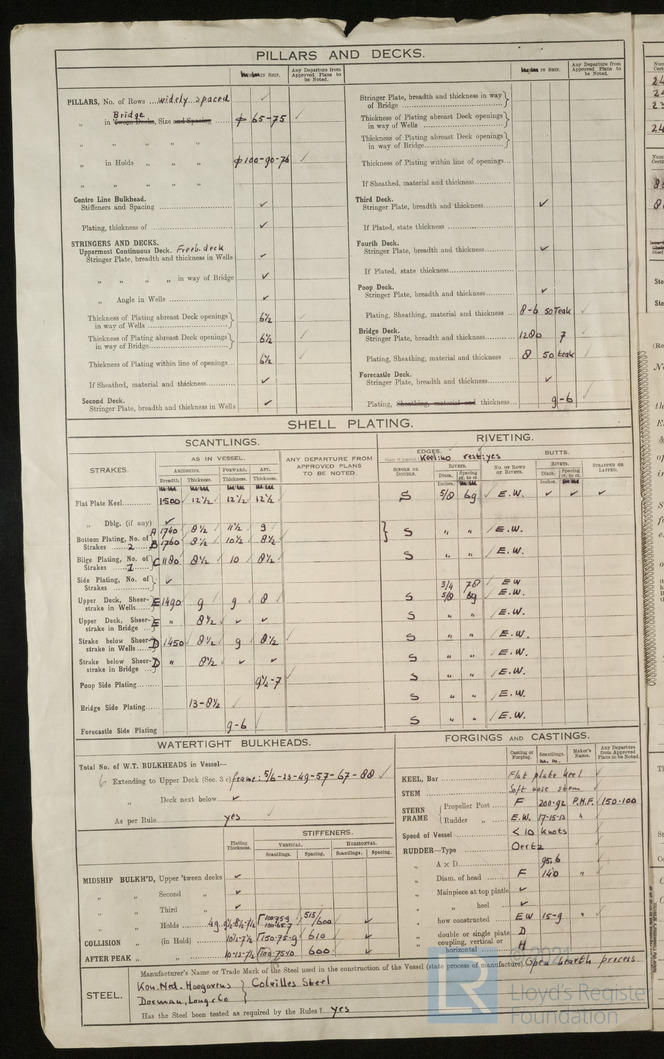 PILLARS AND DECKS.
IN SHIP. Any Departure from Approved Plans to be Noted.
PILLARS, No. of Rows ... widely spaced
Bridge
„ in 'Tween Decks, Size and Spacing φ 65-75
„ „ „ „
„ in Holds „ „ φ 100-90-76
„ „ „ „
Centre Line Bulkhead.
Stiffeners and Spacing
Plating, thickness of
STRINGERS AND DECKS.
Uppermost Continuous Deck. Freeb. deck
Stringer Plate, breadth and thickness in Wells
„ „ „ „ in way of Bridge
„ Angle in Wells
Thickness of Plating abreast Deck openings in way of Wells 6½
Thickness of Plating abreast Deck openings in way of Bridge 6½
Thickness of Plating within line of openings 6½
If Sheathed, material and thickness
Second Deck.
Stringer Plate, breadth and thickness in Wells
IN SHIP. Any Departure from Approved Plans to be Noted.
Stringer Plate, breadth and thickness in way of Bridge
Thickness of Plating abreast Deck openings in way of Wells
Thickness of Plating abreast Deck openings in way of Bridge
Thickness of Plating within line of openings
If Sheathed, material and thickness
Third Deck.
Stringer Plate, breadth and thickness
If Plated, state thickness
Fourth Deck.
Stringer Plate, breadth and thickness
If Plated, state thickness
Poop Deck.
Stringer Plate, breadth and thickness
Plating, Sheathing, material and thickness 8-6 50 Teak
Bridge Deck.
Stringer Plate, breadth and thickness 1280 7
Plating, Sheathing, material and thickness 8 50 teak
Forecastle Deck.
Stringer Plate, breadth and thickness
Plating, Sheathing, material and thickness 9-6
SHELL PLATING.
SCANTLINGS. RIVETING.
STRAKES. AS IN VESSEL. ANY DEPARTURE FROM APPROVED PLANS TO BE NOTED. EDGES. Keel: no rest: yes BUTTS.
AMIDSHIPS. FORWARD. AFT. SINGLE OR DOUBLE. RIVETS. No. OF ROWS OF RIVETS. RIVETS. STRAPPED OR LAPPED.
Breadth. Thickness. Thickness. Thickness. Diam. Spacing cr. to cr. Diam. Spacing cr. to cr.
Flat Plate Keel 1500 12½ 12½ 12½ S 5/8 69 E.W.
„ Dblg. (if any)
Bottom Plating, No. of Strakes 2 A 1740 8½ 11½ 9 S „ „ E.W.
B 1760 8½ 10½ 8½
Bilge Plating, No. of Strakes 1 C 1180 8½ 10 8½ S „ „ E.W.
Side Plating, No. of Strakes 3/4 78 E W
Upper Deck, Sheerstrake in Wells E 1490 9 9 8 S 5/8 69 E.W.
Upper Deck, Sheerstrake in Bridge E „ 8½ S „ „ E.W.
Strake below Sheerstrake in Wells D 1450 8½ 9 8½ S „ „ E.W.
Strake below Sheerstrake in Bridge D „ 8½ S „ „ E.W.
Poop Side Plating 9½-7 S „ „ E.W.
Bridge Side Plating 13-8½ S „ „ E.W.
Forecastle Side Plating 9-6 S „ „ E.W.
WATERTIGHT BULKHEADS.
Total No. of W.T. BULKHEADS in Vessel—
6 Extending to Upper Deck (Sec. 3 c) frame: 5/6-23-49-57-67-88
„ Deck next below
As per Rule yes
Plating Thickness. STIFFENERS.
VERTICAL. HORIZONTAL.
Scantlings. Spacing. Scantlings. Spacing.
MIDSHIP BULKH'D, Upper 'tween decks
„ „ Second „
„ „ Third „
„ „ Holds 515/600
COLLISION „ (in Hold) 10½-7½ 150·75·9 610
AFTER PEAK „ „ 600
FORGINGS AND CASTINGS.
Casting or Forging. Scantlings. Maker's Name. Any Departure from Approved Plans to be Noted.
KEEL, Bar Flat plate keel
STEM Soft nose stem
STERN FRAME Propeller Post F 200·92 P.M.F. 150·100
Rudder „ E.W. 17-15-13 „
Speed of Vessel < 10 knots
RUDDER—Type Oertz
„ A x D 95.6
„ Diam. of head F 140 „
„ Mainpiece at top pintle
„ „ heel
„ how constructed EW 15-9 „
„ double or single plate D
„ coupling, vertical or horizontal H
STEEL.
Manufacturer's Name or Trade Mark of the Steel used in the construction of the Vessel (state process of manufacture) Open hearth process
Kon. Ned. Hoogovens } Colvilles Steel
Dorman, Long & Co }
Has the Steel been tested as required by the Rules? yes
© 2021
LR
Lloyd's Register
Foundation